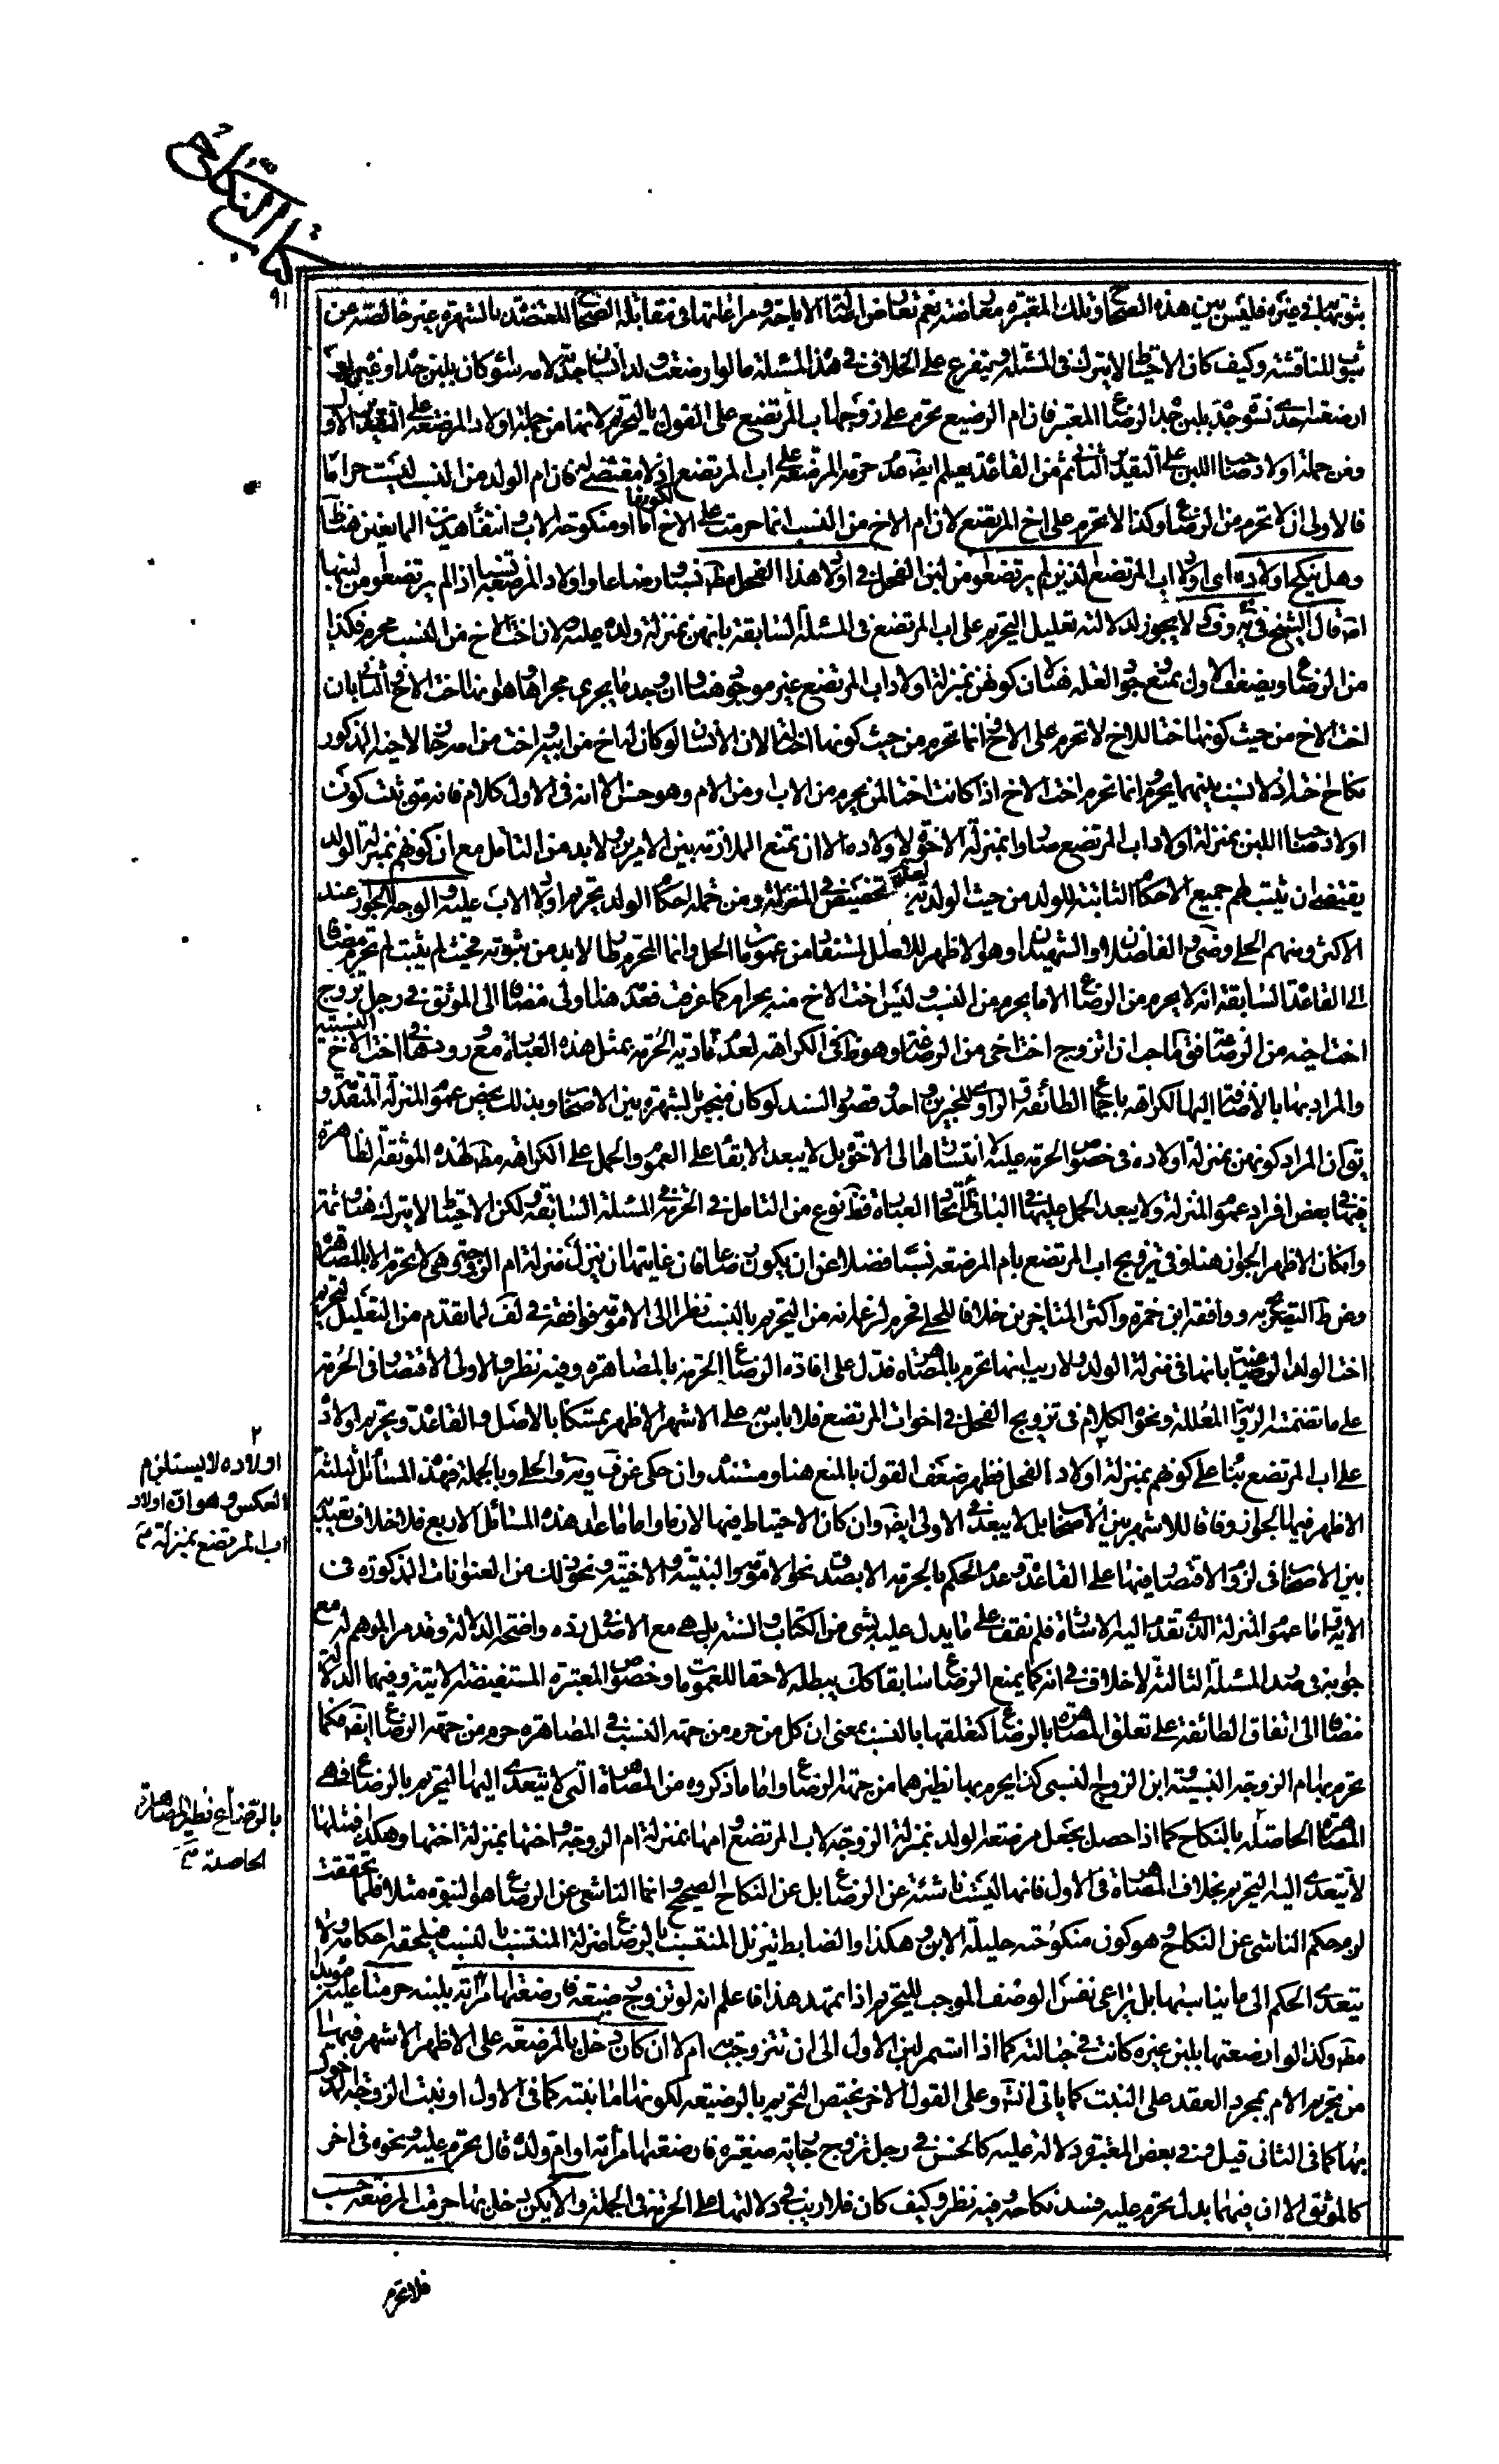 كتاب النكاح
٩١
ثبوتها في غيره فليس بين هذه الصحاح وتلك المعتبرة معارضة نعم تعارض اصالة الاباحة ومراعاتها في مقابلة الصحاح المعتضدة بالشهرة غير خالصة عن
شوب المناقشة وكيف كان الاحتياط لا يترك في المسئلة ويتفرع على الخلاف في هذه المسئلة ما لو ارضعت ولد انسان جدته لامه سواء كان بلبن جده او غيره او
ارضعته احدى نسوة جده بلبن جده الرضاع المعتبر فان ام الرضيع تحرم على زوجها اب المرتضع على القول بالتحريم لانها من جملة اولاد المرضعة على التقدير الاول
ومن جملة اولاد صاحب اللبن على التقدير الثاني ثم من القاعدة يعلم ايضا عدم حرمة المرضعة على اب المرتضع اذ لا مقتضى له فان ام الولد من النسب ليست حراما
فالاولى ان لا تحرم من الرضاع وكذا لا تحرم على اخ المرتضع لان ام الاخ من النسب انما حرمت على الاخ لكونها اما او منكوحة الاب وانتفاء هذين المانعين هنا ظاهر
وهل ينكح اولاده اي اولاد اب المرتضع الذين لم يرتضعوا من لبن الفحل في اولاد هذا الفحل مطلقا نسبا ورضاعا واولاد المرضعة نسبا اذا لم يرتضعوا من لبنها
ام قال الشيخ في ية وف لا يجوز لدلالة تعليل التحريم على اب المرتضع في المسئلة السابقة بانهن بمنزلة ولده عليه ولان اخت الاخ من النسب محرم فكذا
من الرضاع ويضعف الاول بمنع وجود العلة هنا لان كونهن بمنزلة اولاد اب المرتضع غير موجود هنا وان وجد ما يجري مجراها وهو انها اخت الاخ والثاني بان
اخت الاخ من حيث كونها اختا للاخ لا تحرم على الاخ وانما تحرم من حيث كونها اختا له الا ان الانسان لو كان له اخ من ابيه واخت من امه جاز لاخيه المذكور
نكاح اخته اذ لا نسب بينهما يحرم وانما تحرم اخت الاخ اذا كانت اختا لمن يحرم من الاب ومن الام وهو حسن الا انه في الاول كلام فانه متى ثبت كون
اولاد صاحب اللبن بمنزلة اولاد اب المرتضع صاروا بمنزلة الاخوة لاولاده الا ان تمنع الملازمة بين الامرين ولا بد من التأمل مع ان كونهم بمنزلة الولد
يقتضي ان يثبت لهم جميع الاحكام الثابتة للولد من حيث الولدية لعدم تخصيص في المنزلة ومن جملة احكام الولد تحريم اولاد الاب عليه والوجه الجواز عند
الاكثر ومنهم الحلي وضى والفاضلان والشهيدان وهو الاظهر للاصل المستفاد من عمومات الحل وانما التحريم طار لا بد من ثبوته فحيث لم يثبت لم تحرم مضافا
الى القاعدة السابقة انه لا يحرم من الرضاع الا ما يحرم من النسب وليس اخت الاخ منه بحرام كما عرفت فعدمه هنا اولى مضافا الى الموثق في رجل تزوج
اخت اخيه من الرضاعة فق ما احب ان اتزوج اخت اخي من الرضاعة وهو ظ في الكراهة لعدم تأدية الحرمة بمثل هذه العبارة مع ورودها في اخت الاخ النسبية
والمراد بها بالاضافة اليها الكراهة باجماع الطائفة والراوي للخبرين واحد وقصور السند لو كان فمنجبر بالشهرة بين الاصحاب وبذلك يخص عموم المنزلة المتقدمة و
يتو ان المراد كونهن بمنزلة اولاده في خصوص الحرمة عليه لا انتسابها الى الاخوة بل لا يبعد الابقاء على العموم والحمل على الكراهة مطلقا لهذه الموثقة الظاهرة
فيها بعض افراد عموم المنزلة ولا يبعد الحمل عليها في الباقي لاتحاد العبارة فظ نوع من التامل في الحرمة في المسئلة السابقة ولكن الاحتياط لا يترك هنا وثمة
وان كان الاظهر الجواز هنا وفي تزويج اب المرتضع بام المرضعة نسبا فضلا عن ان يكون رضاعا فان غايتها ان ينزل منزلة ام الزوجة وهي لا تحرم الا بالمصاهرة
وفي ط التصريح به ووافقه ابن حمزة واكثر المتاخرين خلافا للحلي فحرم لزعمه انه من التحريم بالنسب نظرا الى الامومة ووافقه في لف لما تقدم من التعليل لتحريم
اخت الولد الرضيع بانها في منزلة الولد ولا ريب انها تحرم بالمصاهرة فدل على افادة الرضاع الحرمة بالمصاهرة وفيه نظر والاولى الاقتصار في الحرمة
على ما تضمنته الرواية المعللة ونحوه الكلام في تزويج الفحل في اخوات المرتضع فلا باس به على الاشهر الاظهر تمسكا بالاصل والقاعدة وتحريم اولاده
على اب المرتضع بناء على كونهم بمنزلة اولاد الفحل فظهر ضعف القول بالمنع هنا ومستنده وان حكى عن ف وية والحلي وبالجملة فهذه المسائل الثلثة
الاظهر فيها الجواز وفاقا للاشهر بين الاصحاب بل لا يبعد في الاولى ايضا وان كان الاحتياط فيها لازما واما ما عدا هذه المسائل الاربع فلا خلاف يعتد به
بين الاصحاب في لزوم الاقتصار فيها على القاعدة وعدم الحكم بالحرمة الا بصدق نحو الامومة والبنتية والاختية ونحو ذلك من العنوانات المذكورة في
الاية واما عموم المنزلة الذي تقدم اليه الاشارة فلم نقف على ما يدل عليه بشيء من الكتاب والسنة بل هي مع الاصل في رده واضحة الدلالة وقد مر الموهم له مع
جوابه في صدر المسئلة الثالثة لا خلاف في انه كما يمنع الرضاع سابقا كك يبطله لاحقا للعمومات وخصوص المعتبرة المستفيضة الاتية وفيها الدلالة
مضافا الى اتفاق الطائفة على تعلق المصاهرة بالرضاع كتعلقها بالنسب بمعنى ان كل من حرم من جهة النسب في المصاهرة حرم من جهة الرضاع ايضا فكما
تحرم بها ام الزوجة النسبية وابن الزوج النسبي كذا يحرم بها نظيرهما من جهة الرضاع واما ما ذكروه من المصاهرة التي لا يتعدى اليها التحريم بالرضاع فهي
المصاهرة الحاصلة بالنكاح كما اذا حصل بجعل مرضعة الولد بمنزلة الزوجة لاب المرتضع وامها بمنزلة ام الزوجة واختها بمنزلة اختها وهكذا فمثلها
لا يتعدى اليه التحريم بخلاف المصاهرة في الاول فانها ليست ناشئة عن الرضاع بل عن النكاح الصحيح وانما الناشئ عن الرضاع هو البنوة مثلا فلما تحققت
لزم حكم الناشئ عن النكاح وهو كون منكوحته حليلة الابن وهكذا والضابط تنزيل المنتسب بالرضاع منزلة المنتسب بالنسب فيلحقه احكامه ولا
يتعدى الحكم الى ما يناسبها بل يراعى نفس الوصف الموجب للتحريم اذا تمهد هذا فاعلم انه لو تزوج رضيعة فارضعتها امراته بلبنه حرمتا عليه مؤبدا
مطلقا وكذا لو ارضعتها بلبن غيره كانت في حبالته كما اذا استمر لبن الاول الى ان تتزوج به ام لا ان كان دخل بالمرضعة على الاظهر الاشهر فيها
من تحريم الام بمجرد العقد على البنت كما ياتي انش وعلى القول الاخر يختص التحريم بالرضيعة لكونها اما بنته كما في الاول او بنت الزوجة المدخول
بها كما في الثاني قيل وفي بعض المعتبرة دلالة عليه كالحسن في رجل تزوج جارية صغيرة فارضعتها امرأته او ام ولده قال تحرم عليه ونحوه في اخر
كالموثق الا ان فيهما بدل تحرم عليه فسد نكاحه وفيه نظر وكيف كان فلا ريب في دلالتها على الحرمة في الجملة والا يكن دخل بها حرمت المرضعة حسب
اولاده لا يستلزم
العكس وهو ان اولاد
اب المرتضع بمنزلة
بالرضاع نظير المصاهرة
الحاصلة
فلا تحرم